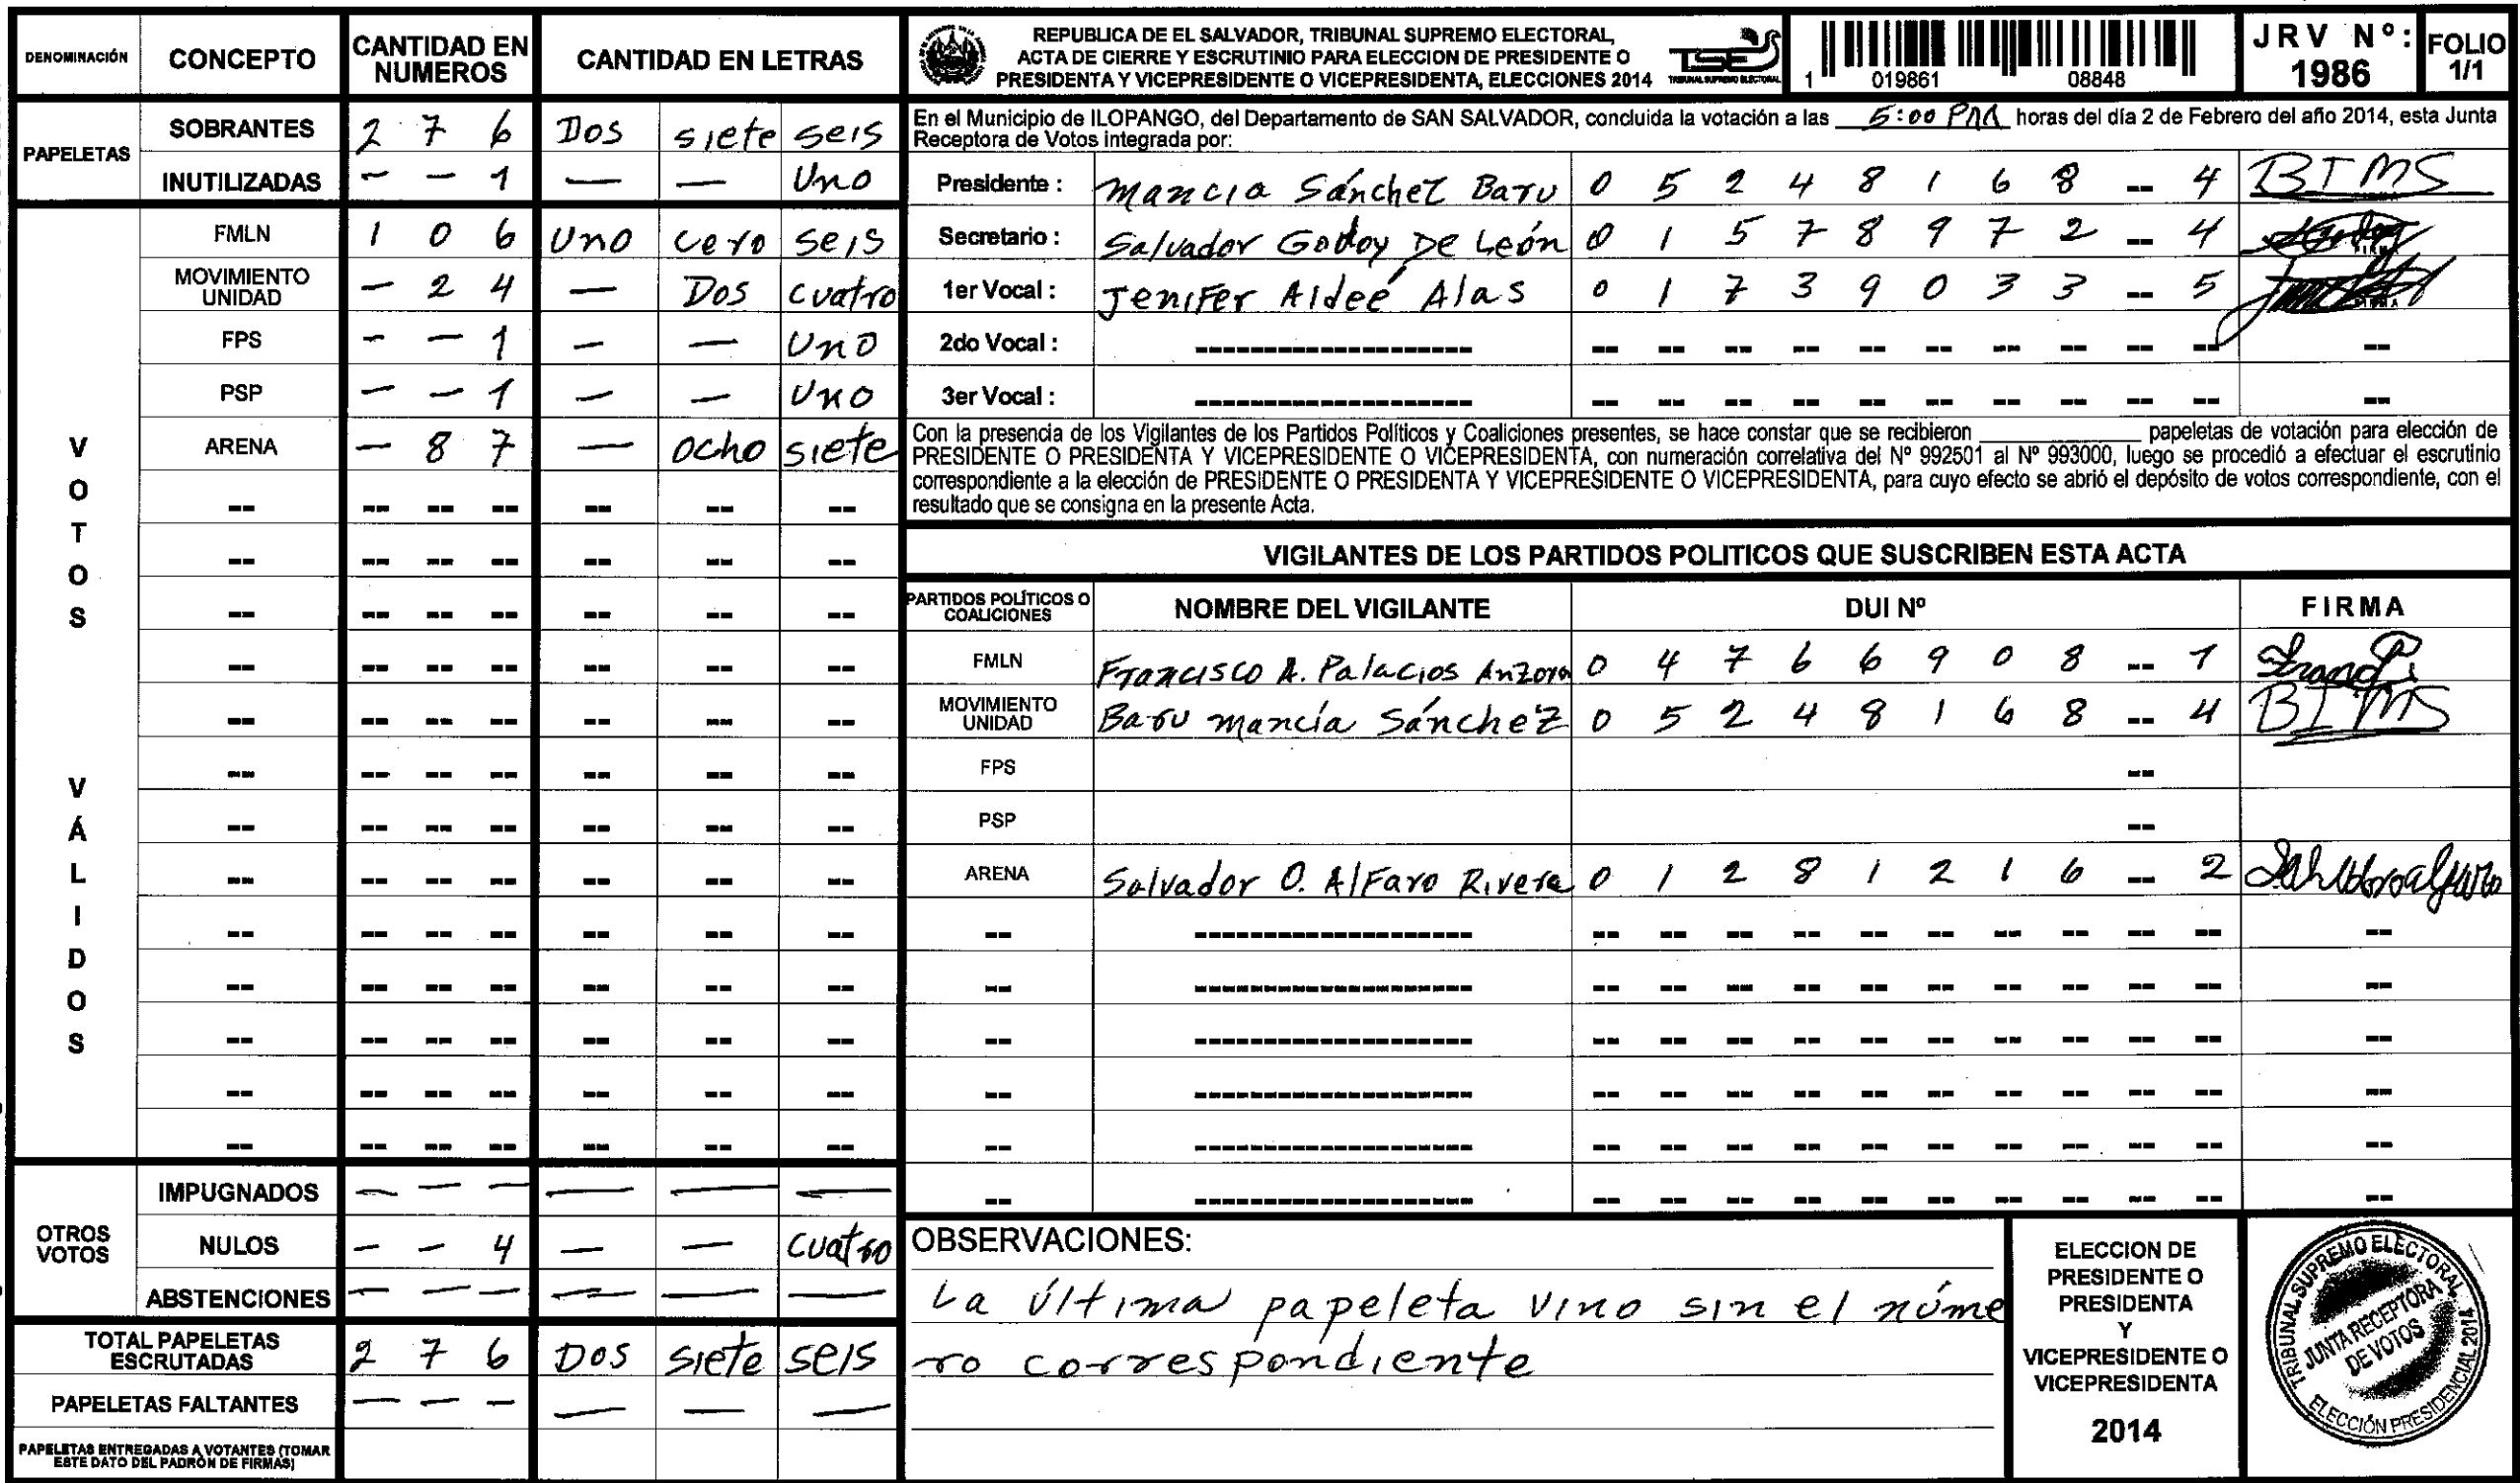 DENOMINACIÓN CONCEPTO CANTIDAD EN NUMEROS CANTIDAD EN LETRAS
PAPELETAS
SOBRANTES 2 7 6 Dos siete seis
INUTILIZADAS - - 1 — — Uno
VOTOS VÁLIDOS
FMLN 1 0 6 Uno cero seis
MOVIMIENTO UNIDAD - 2 4 — Dos cuatro
FPS - - 1 — — Uno
PSP - - 1 — — Uno
ARENA - 8 7 — ocho siete
-- -- -- -- -- -- --
-- -- -- -- -- -- --
-- -- -- -- -- -- --
-- -- -- -- -- -- --
-- -- -- -- -- -- --
-- -- -- -- -- -- --
-- -- -- -- -- -- --
-- -- -- -- -- -- --
-- -- -- -- -- -- --
-- -- -- -- -- -- --
-- -- -- -- -- -- --
-- -- -- -- -- -- --
-- -- -- -- -- -- --
OTROS VOTOS
IMPUGNADOS - - - — — —
NULOS - - 4 — — cuatro
ABSTENCIONES - - - — — —
TOTAL PAPELETAS ESCRUTADAS 2 7 6 Dos siete seis
PAPELETAS FALTANTES - - - — — —
PAPELETAS ENTREGADAS A VOTANTES (TOMAR
ESTE DATO DEL PADRÓN DE FIRMAS)
REPUBLICA DE EL SALVADOR, TRIBUNAL SUPREMO ELECTORAL,
ACTA DE CIERRE Y ESCRUTINIO PARA ELECCION DE PRESIDENTE O
PRESIDENTA Y VICEPRESIDENTE O VICEPRESIDENTA, ELECCIONES 2014
TSE
TRIBUNAL SUPREMO ELECTORAL
1 019861 08848
JRV Nº: 1986
FOLIO 1/1
En el Municipio de ILOPANGO, del Departamento de SAN SALVADOR, concluida la votación a las 5:00 PM horas del día 2 de Febrero del año 2014, esta Junta
Receptora de Votos integrada por:
Presidente : Mancia Sánchez Baru 0 5 2 4 8 1 6 8 -- 4 BIMS
Secretario : Salvador Godoy De León 0 1 5 7 8 9 7 2 -- 4
1er Vocal : Jenifer Aldeé Alas 0 1 7 3 9 0 3 3 -- 5
2do Vocal : ------------------- -- -- -- -- -- -- -- -- -- -- --
3er Vocal : ------------------- -- -- -- -- -- -- -- -- -- -- --
Con la presencia de los Vigilantes de los Partidos Políticos y Coaliciones presentes, se hace constar que se recibieron ________ papeletas de votación para elección de
PRESIDENTE O PRESIDENTA Y VICEPRESIDENTE O VICEPRESIDENTA, con numeración correlativa del Nº 992501 al Nº 993000, luego se procedió a efectuar el escrutinio
correspondiente a la elección de PRESIDENTE O PRESIDENTA Y VICEPRESIDENTE O VICEPRESIDENTA, para cuyo efecto se abrió el depósito de votos correspondiente, con el
resultado que se consigna en la presente Acta.
VIGILANTES DE LOS PARTIDOS POLITICOS QUE SUSCRIBEN ESTA ACTA
PARTIDOS POLÍTICOS O COALICIONES NOMBRE DEL VIGILANTE DUI Nº FIRMA
FMLN Francisco A. Palacios Anzora 0 4 7 6 6 9 0 8 -- 1
MOVIMIENTO UNIDAD Baru Mancía Sánchez 0 5 2 4 8 1 6 8 -- 4 BIMS
FPS --
PSP --
ARENA Salvador O. Alfaro Rivera 0 1 2 8 1 2 1 6 -- 2
-- ------------------- -- -- -- -- -- -- -- -- -- -- --
-- ------------------- -- -- -- -- -- -- -- -- -- -- --
-- ------------------- -- -- -- -- -- -- -- -- -- -- --
-- ------------------- -- -- -- -- -- -- -- -- -- -- --
-- ------------------- -- -- -- -- -- -- -- -- -- -- --
-- ------------------- -- -- -- -- -- -- -- -- -- -- --
OBSERVACIONES:
La última papeleta vino sin el núme
ro correspondiente
ELECCION DE
PRESIDENTE O
PRESIDENTA
Y
VICEPRESIDENTE O
VICEPRESIDENTA
2014
TRIBUNAL SUPREMO ELECTORAL
JUNTA RECEPTORA
DE VOTOS
ELECCIÓN PRESIDENCIAL 2014